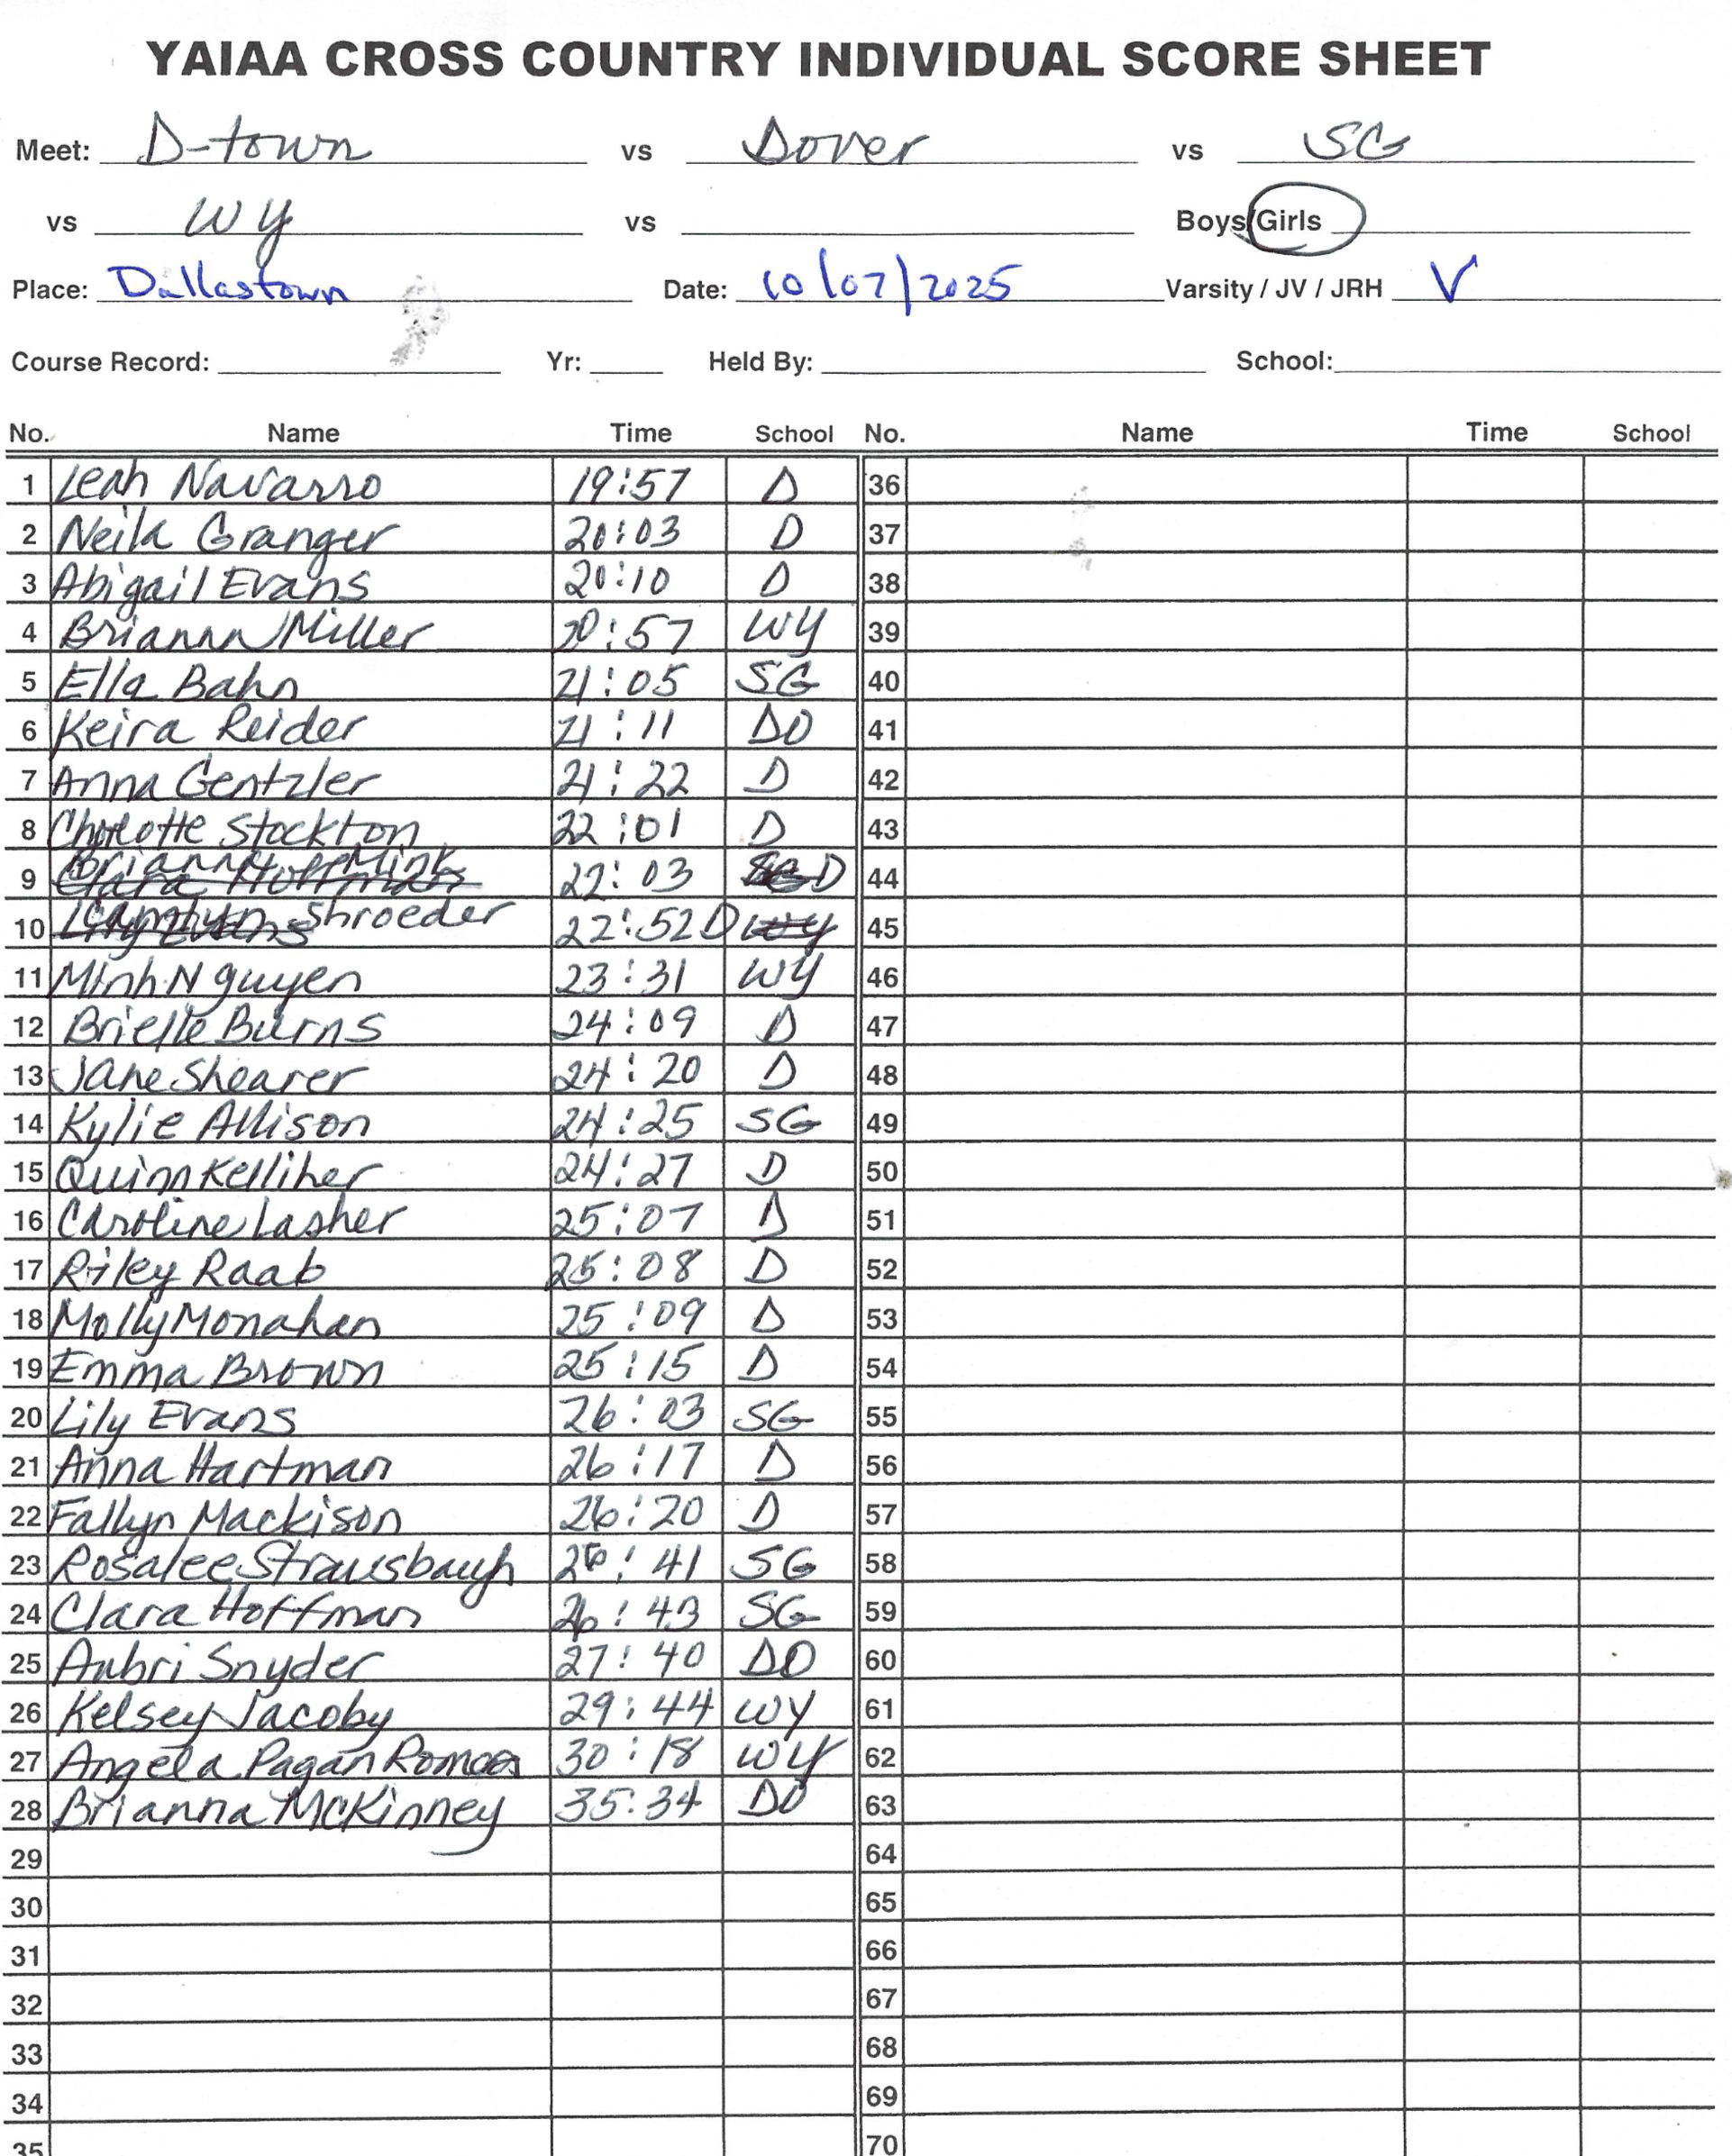 YAIAA CROSS COUNTRY INDIVIDUAL SCORE SHEET
Meet: D-town vs Dover vs SG
vs WY vs Boys/Girls
Place: Dallastown Date: 10/07/2025 Varsity / JV / JRH V
Course Record: Yr: Held By: School:
No. Name Time School No. Name Time School
1 Leah Navarro 19:57 D 36
2 Neila Granger 20:03 D 37
3 Abigail Evans 20:10 D 38
4 Briann Miller 20:57 WY 39
5 Ella Bahn 21:05 SG 40
6 Keira Reider 21:11 DO 41
7 Anna Gentzler 21:22 D 42
8 Charlotte Stockton 22:01 D 43
9 Mink 22:03 D 44
10 Shroeder 22:52 D 45
11 Minh Nguyen 23:31 WY 46
12 Brielle Burns 24:09 D 47
13 Jane Shearer 24:20 D 48
14 Kylie Allison 24:25 SG 49
15 Quinn Kelliher 24:27 D 50
16 Caroline Lasher 25:07 D 51
17 Riley Raab 25:08 D 52
18 Molly Monahan 25:09 D 53
19 Emma Brown 25:15 D 54
20 Lily Evans 26:03 SG 55
21 Anna Hartman 26:17 D 56
22 Fallyn Mackison 26:20 D 57
23 Rosalee Strausbaugh 26:41 SG 58
24 Clara Hoffman 26:43 SG 59
25 Aubri Snyder 27:40 DO 60
26 Kelsey Jacoby 29:44 WY 61
27 Angela Pagan 30:18 WY 62
28 Brianna McKinney 35:34 DO 63
29 64
30 65
31 66
32 67
33 68
34 69
35 70